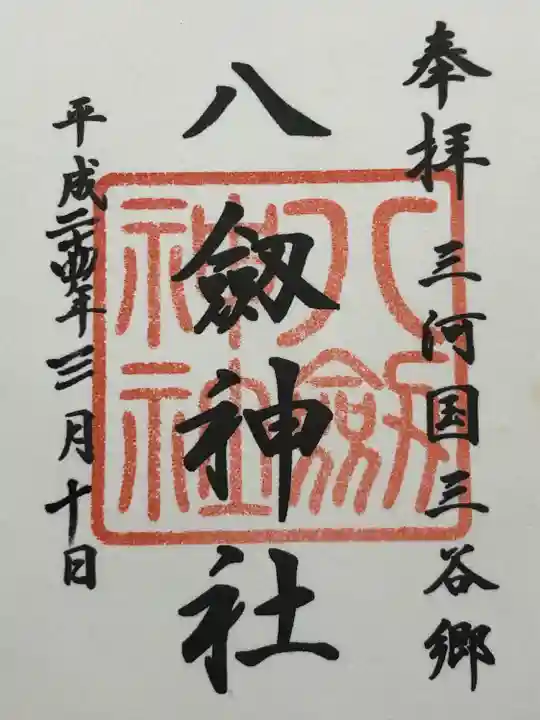 奉拝 三河国三谷郷
八劔神社
平成二十四年三月十日
八劔
神社